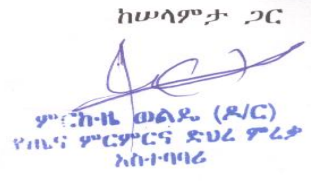 ከሠላምታ ጋር
ምርክዜ ወልዴ (ዶ/ር)
የጤና ምርምርና ድህረ ምረቃ
አስተባባሪ